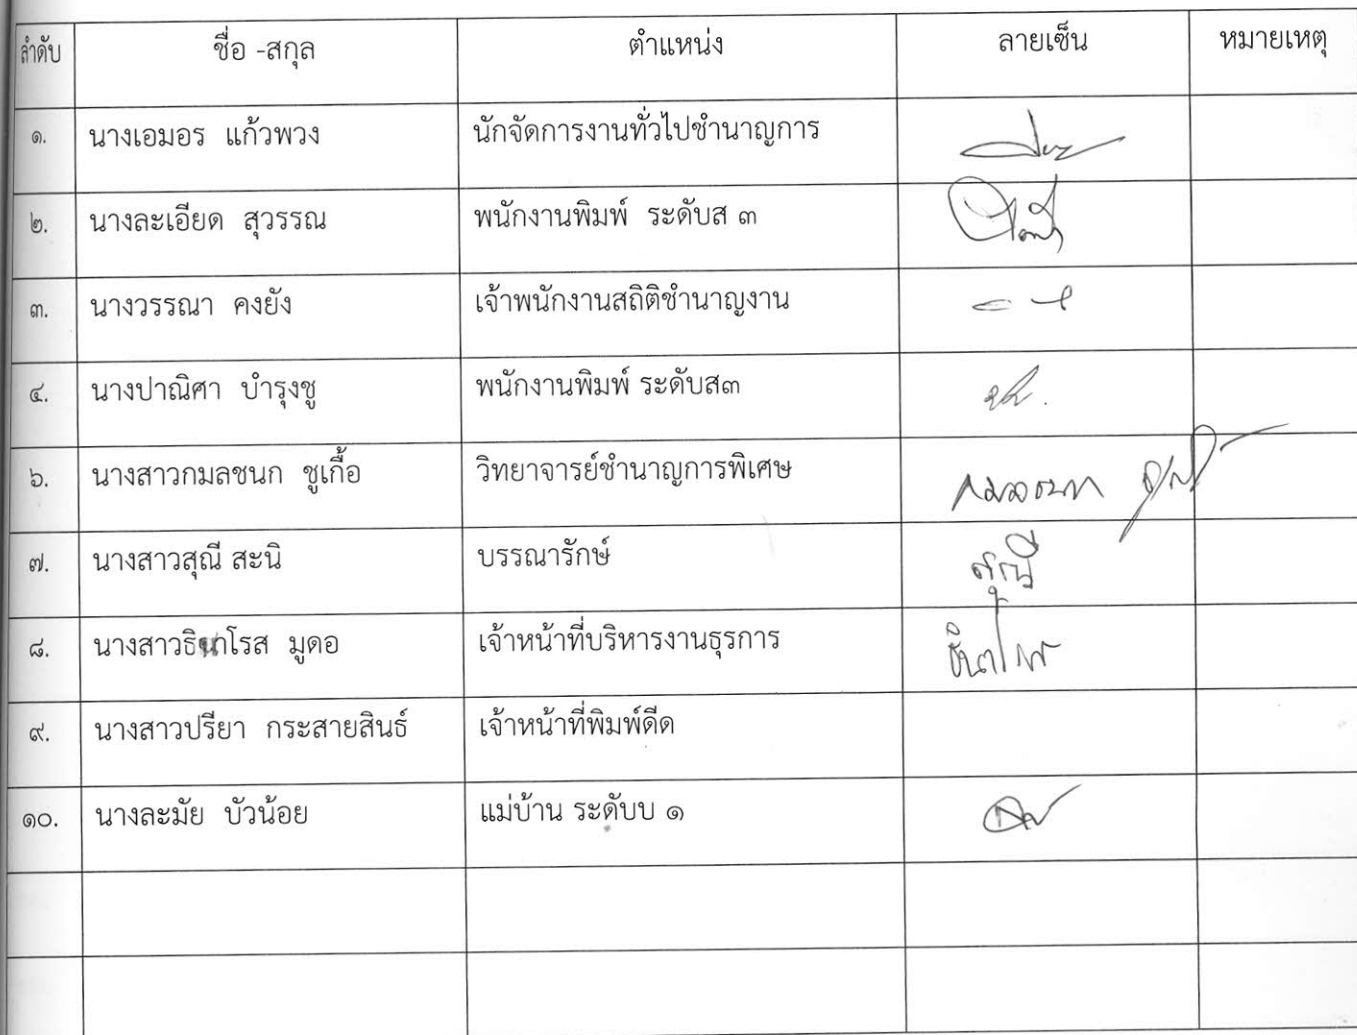 ลำดับ ชื่อ -สกุล ตำแหน่ง ลายเซ็น หมายเหตุ
๑. นางเอมอร แก้วพวง นักจัดการงานทั่วไปชำนาญการ
๒. นางละเอียด สุวรรณ พนักงานพิมพ์ ระดับส ๓
๓. นางวรรณา คงยัง เจ้าพนักงานสถิติชำนาญงาน
๔. นางปาณิศา บำรุงชู พนักงานพิมพ์ ระดับส๓
๖. นางสาวกมลชนก ชูเกื้อ วิทยาจารย์ชำนาญการพิเศษ กมลชนก
๗. นางสาวสุณี สะนิ บรรณารักษ์ สุณี
๘. เจ้าหน้าที่บริหารงานธุรการ
นางสาว มูดอ
๙. นางสาวปรียา กระสายสินธ์ เจ้าหน้าที่พิมพ์ดีด
๑๐. นางละมัย บัวน้อย แม่บ้าน ระดับบ ๑